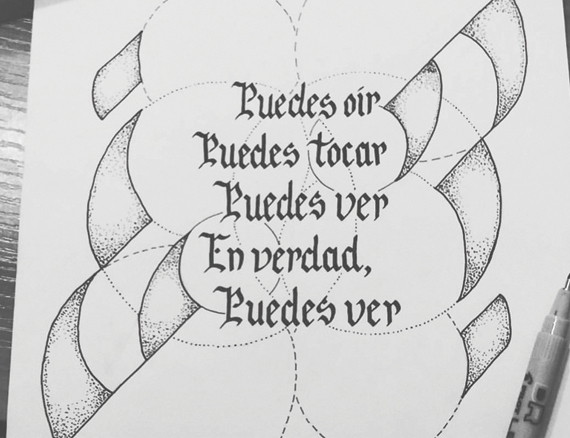 Puedes oir
Puedes tocar
Puedes ver
En verdad,
Puedes ver